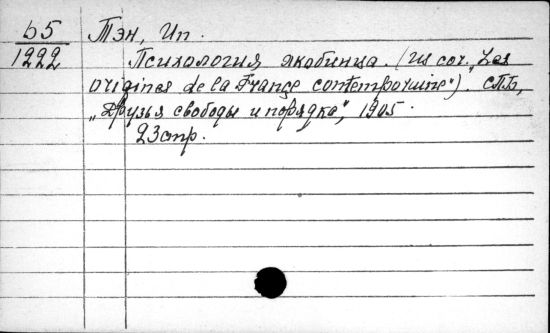 b5 Тэн, Ип.
1222 Психология якобинца. (Из соч. "Les
origines de la France contemporaine"). СПБ,
"Друзья свободы и порядка", 1905.
23 стр.